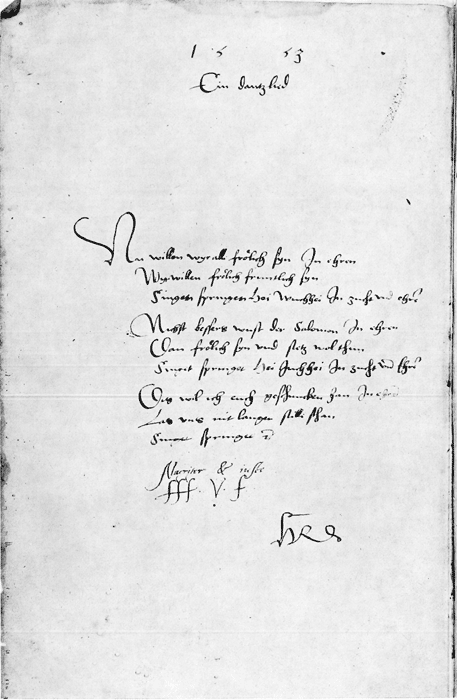 1 5 5 3
Ein dantzlied
Nu willen wyr all frölich syn In ehren
Wyr willen frölich frintlich syn
Singen springen Hei Juchhei In zucht vnd ehrn
Nichst bessers wust der Salomon In ehren
Dan frölich syn vnd stetz wol thun
Singet springet Hei Juchhei In zucht vnd Ehrn
Dis wil ich euch geschencken han In ehren
Las vns nit langer still sthan
Singet springet
Alacriter &
fff. V. f